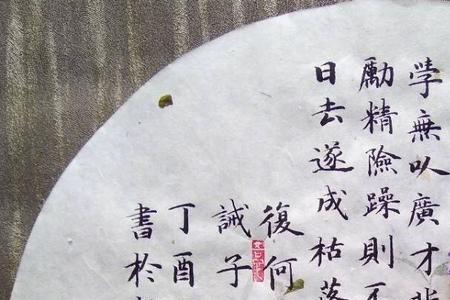 學無以廣才非
勵精險躁則不
日去遂成枯落
復何
誡子
丁酉
書於